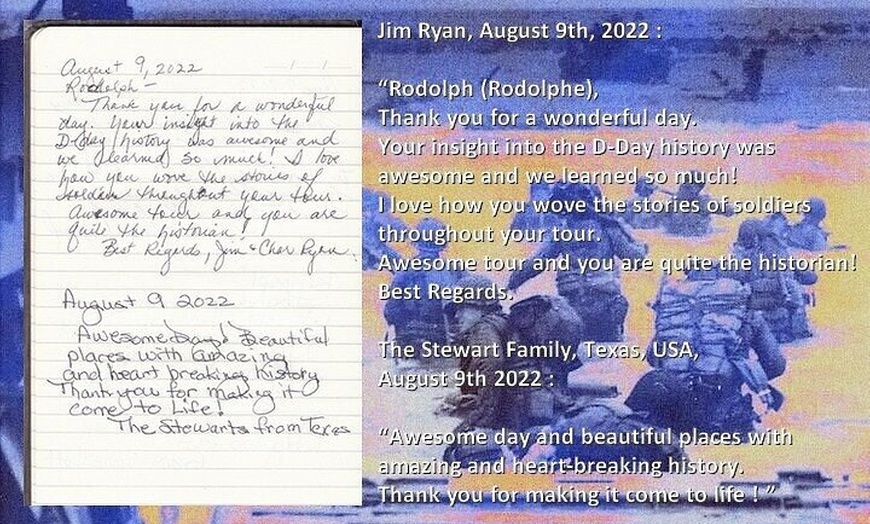 August 9, 2022
Rodolph –
Thank you for a wonderful
day. Your insight into the
D-Day history was awesome and
we learned so much! I love
how you wove the stories of
soldiers throughout your tour.
Awesome tour and you are
quite the historian!
Best Regards, Jim & Cher Ryan
August 9 2022
Awesome Day! Beautiful
places with amazing
and heart breaking history
Thank you for making it
come to Life!
The Stewarts from Texas
Jim Ryan, August 9th, 2022 :
“Rodolph (Rodolphe),
Thank you for a wonderful day.
Your insight into the D-Day history was
awesome and we learned so much!
I love how you wove the stories of soldiers
throughout your tour.
Awesome tour and you are quite the historian!
Best Regards.
The Stewart Family, Texas, USA,
August 9th 2022 :
“Awesome day and beautiful places with
amazing and heart-breaking history.
Thank you for making it come to life ! ”